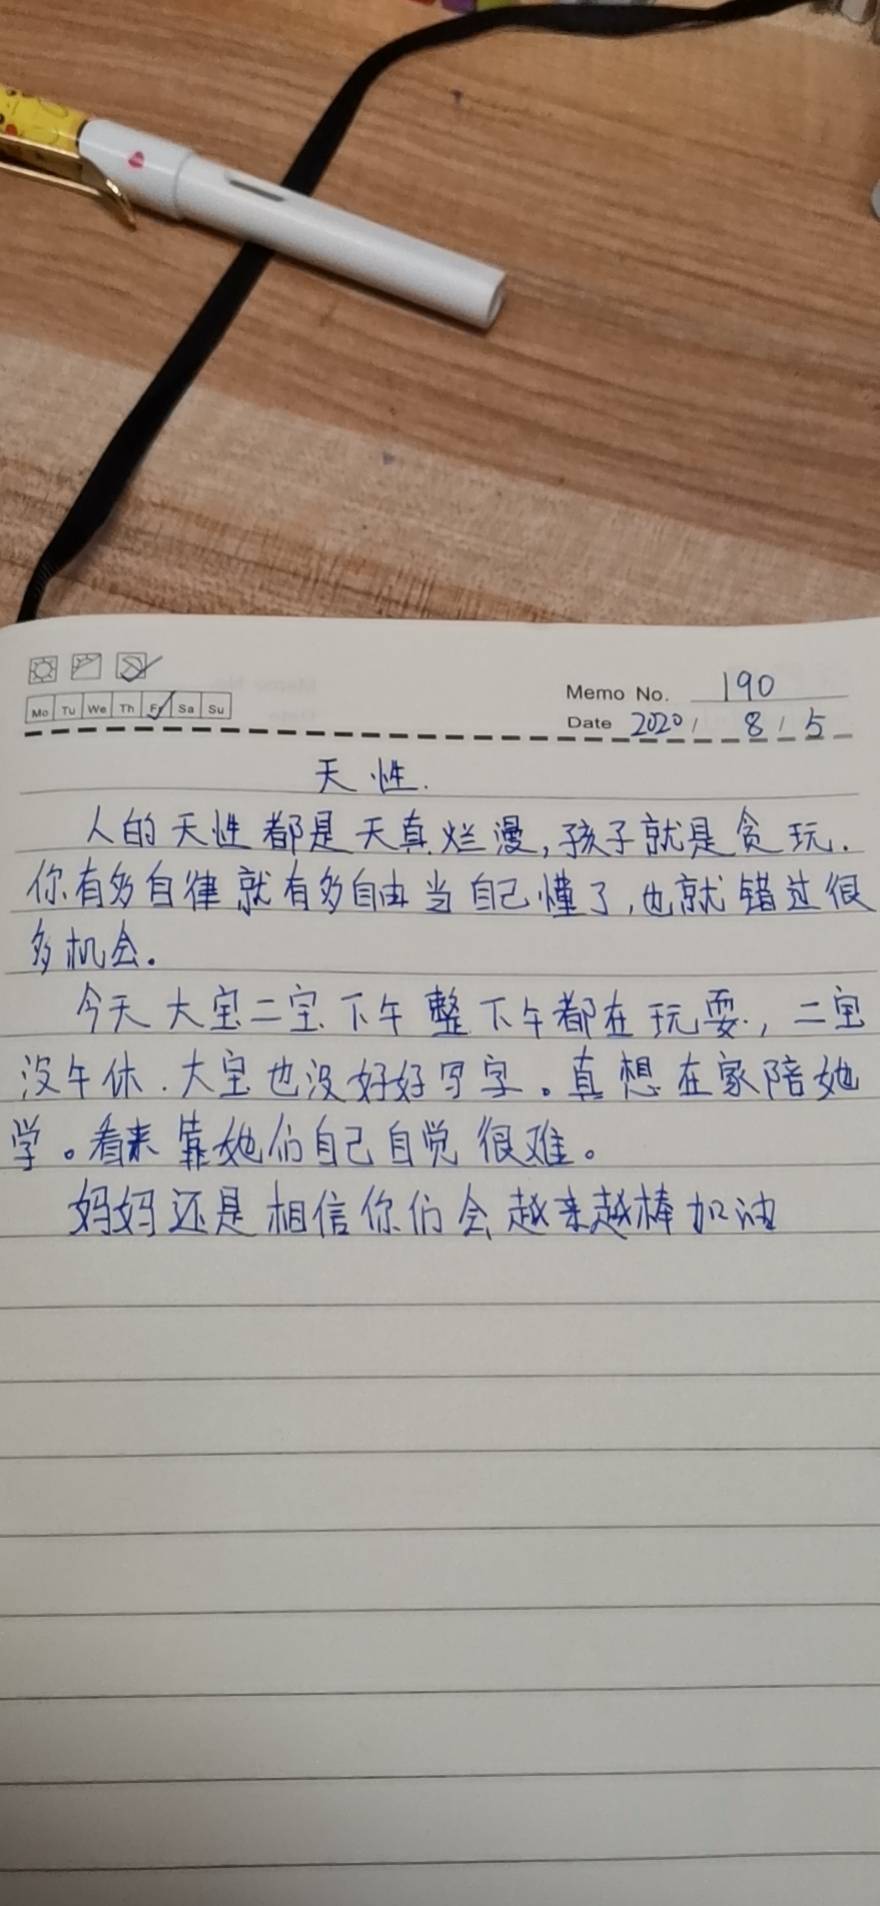 Mo Tu We Th Fr Sa Su
Memo No. 190
Date 2020 / 8 / 5
天性.
人的天性都是天真烂漫,孩子就是贪玩.
你有多自律就有多自由当自己懂了,也就错过很
多机会.
今天大宝二宝下午整下午都在玩耍,二宝
没午休.大宝也没好好写字。真想在家陪她
学。看来靠她们自己自觉很难。
妈妈还是相信你们会越来越棒加油